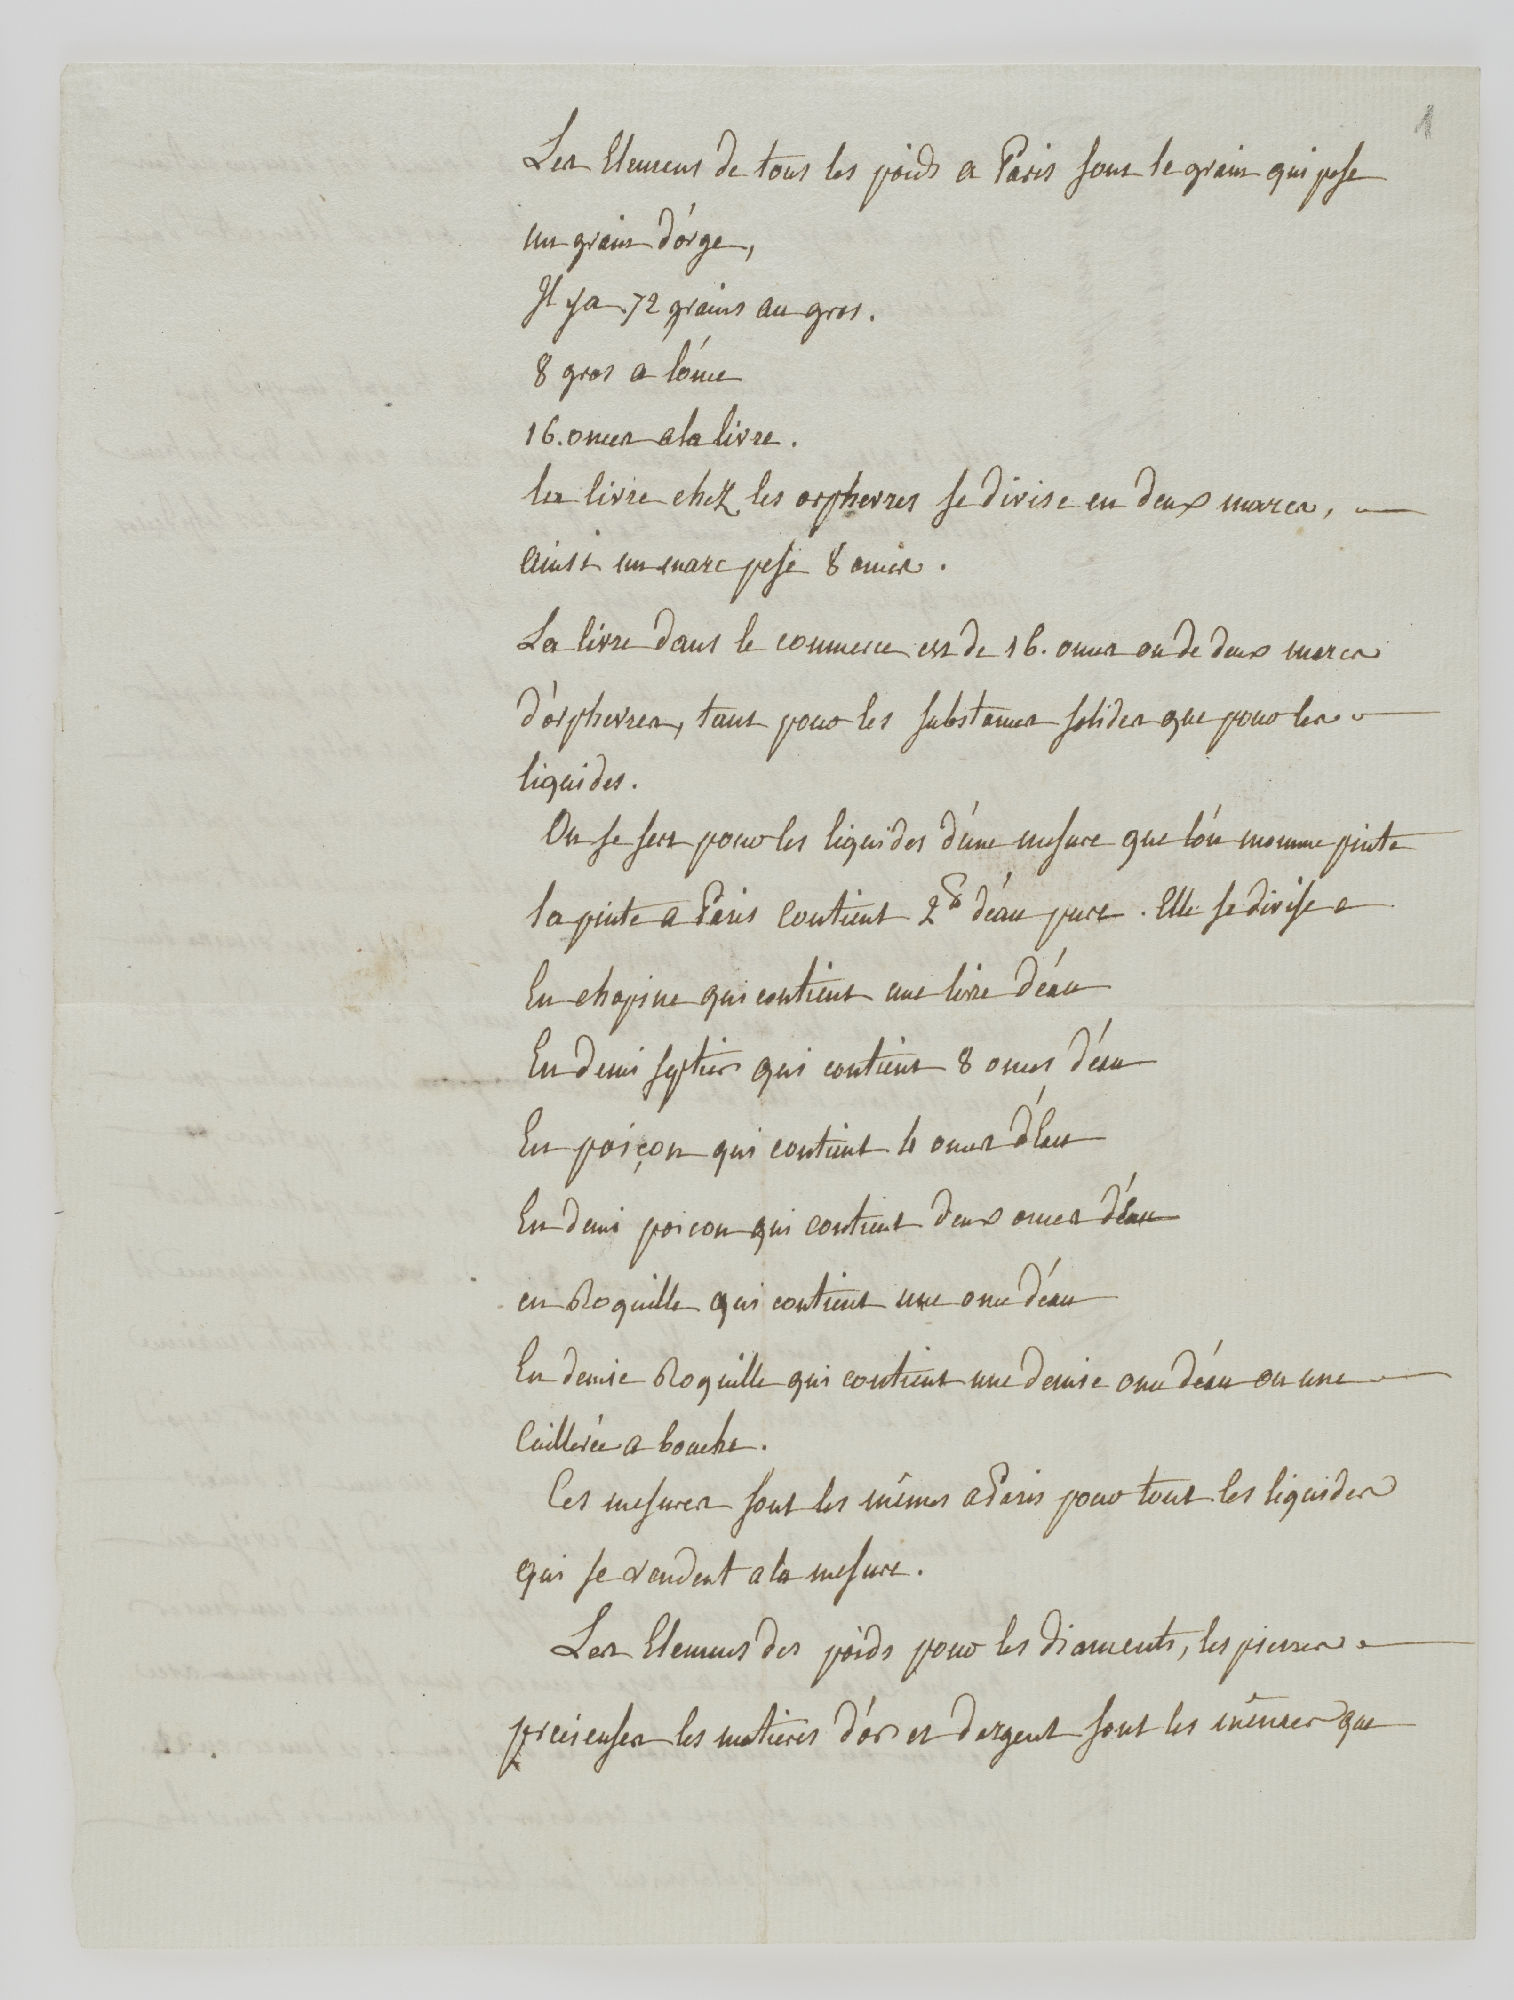 1
Les Elemens de tous les poids a Paris sont le grain qui pese
un grain d'orge,
Il y a 72 grains au gros.
8 gros a l'once
16. onces a la livre.
la livre chez les orphevres se divise en deux marcs,
ainsi un marc pese 8 onces.
La livre dans le commerce est de 16. onces ou de deux marcs
d'orphevres, tant pour les substances solides que pour les
liquides.
On se sert pour les liquides d'une mesure que l'on nomme pinte
la pinte a Paris contient 2 d'eau pure. Elle se divise
En chopine qui contient une livre d'eau
En demi septier qui contient 8 onces d'eau
En poiçon qui contient 4 onces d'Eau
En demi poicon qui contient deux onces d'Eau
en Roquille qui contient une once d'eau
En demie Roquille qui contient une demie once d'eau ou une
Cuillerée a bouche.
Ces mesures sont les mêmes a Paris pour tout les liquides
qui se vendent a la mesure.
Les Elemens des poids pour les diaments, les pierres
precieuses les matieres d'or et dargent sont les mêmes que